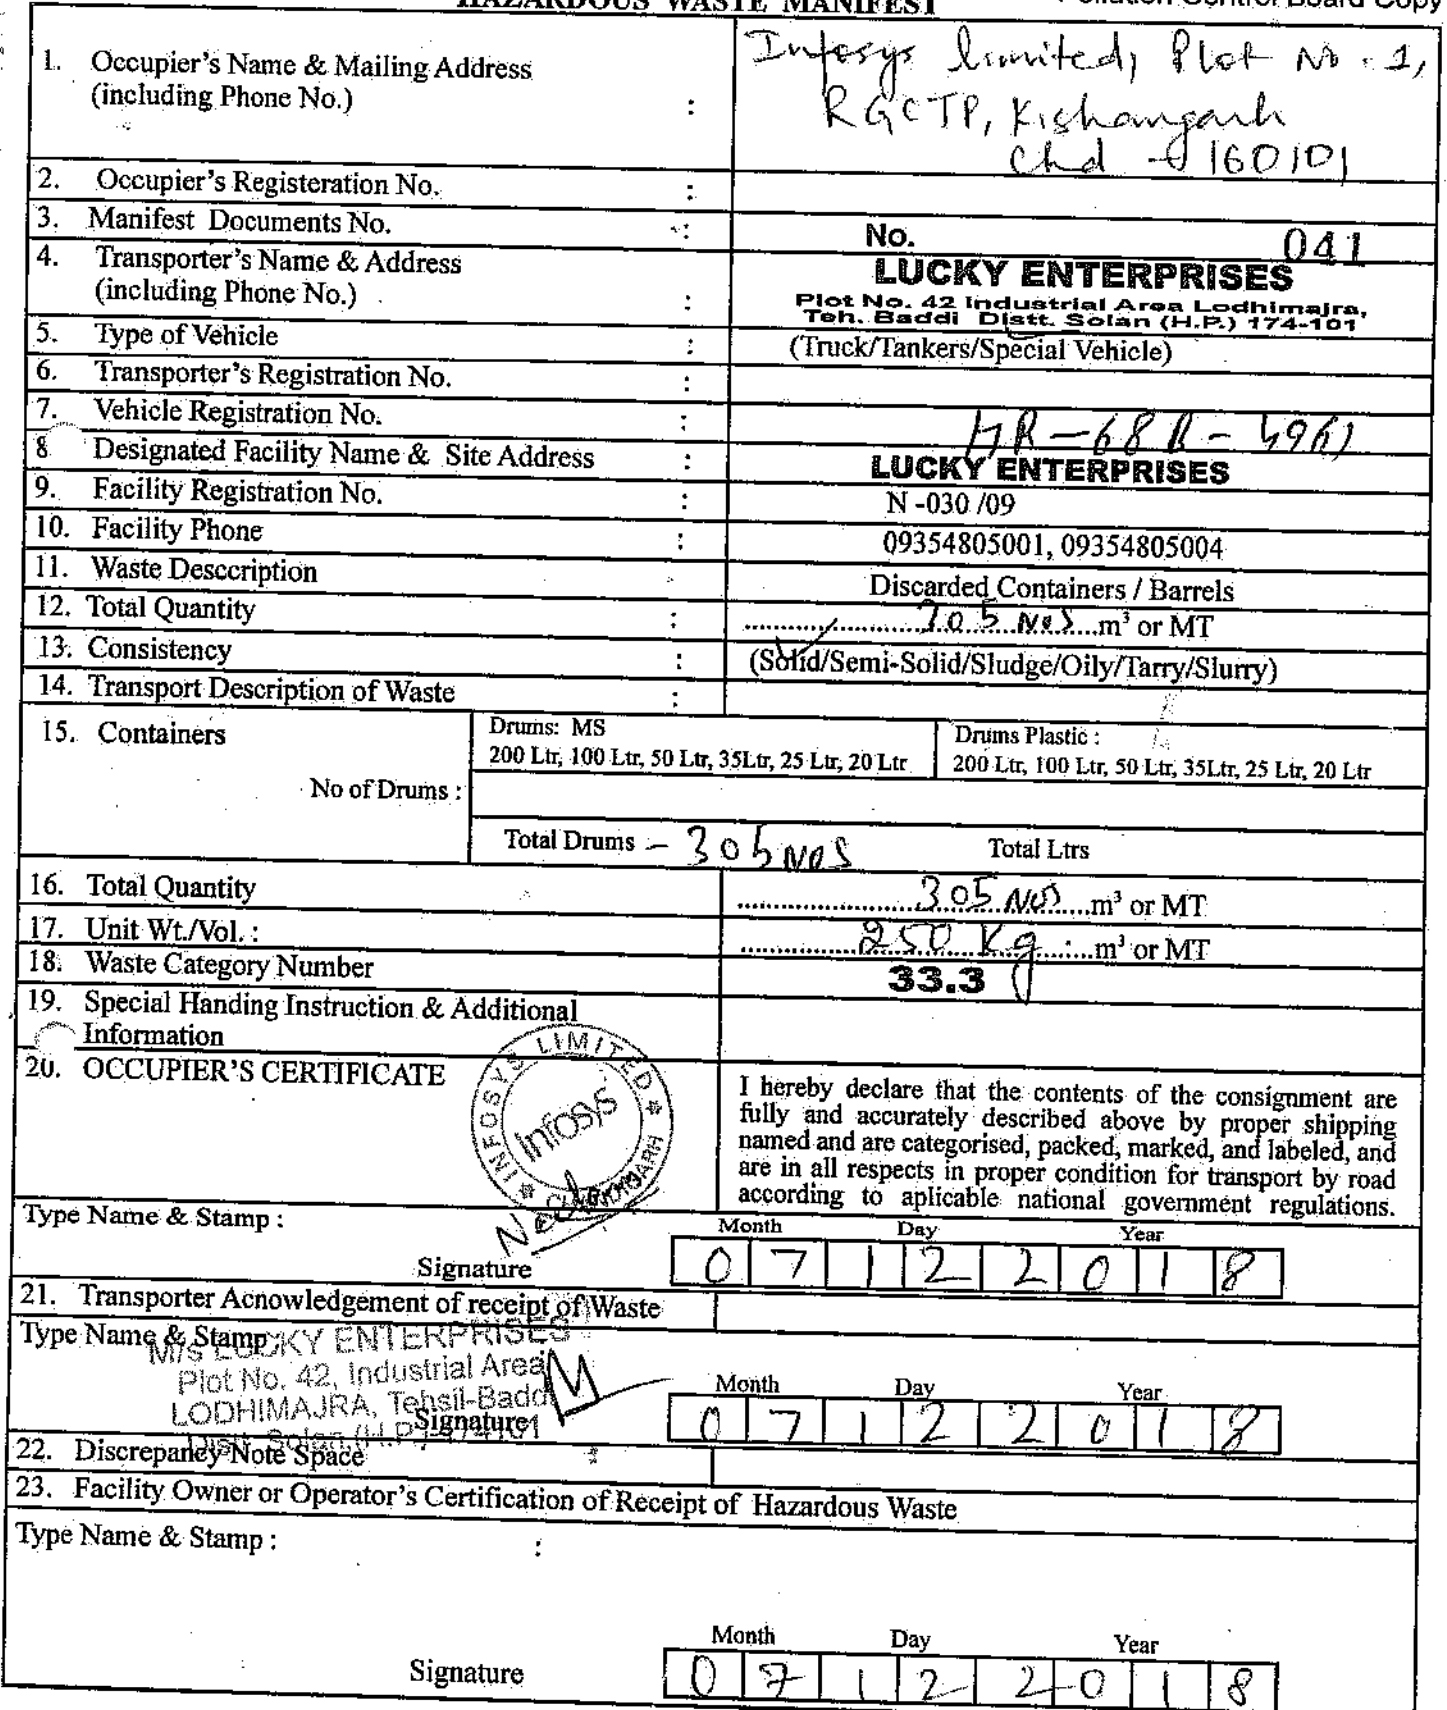 HAZARDOUS WASTE MANIFEST Pollution Control Board Copy
1. Occupier's Name & Mailing Address
(including Phone No.) :
Infosys limited, Plot No. 1,
RGCTP, Kishangarh
Chd - 160101
2. Occupier's Registeration No. :
3. Manifest Documents No. : No. 041
4. Transporter's Name & Address
(including Phone No.) :
LUCKY ENTERPRISES
Plot No. 42 Industrial Area Lodhimajra,
Teh. Baddi Distt. Solan (H.P.) 174-101
5. Type of Vehicle : (Truck/Tankers/Special Vehicle)
6. Transporter's Registration No. :
7. Vehicle Registration No. : HR-68B-4961
8 Designated Facility Name & Site Address : LUCKY ENTERPRISES
9. Facility Registration No. : N -030 /09
10. Facility Phone : 09354805001, 09354805004
11. Waste Desccription Discarded Containers / Barrels
12. Total Quantity : 305 Nos m³ or MT
13. Consistency : (Solid/Semi-Solid/Sludge/Oily/Tarry/Slurry)
14. Transport Description of Waste :
15. Containers
Drums: MS
200 Ltr, 100 Ltr, 50 Ltr, 35Ltr, 25 Ltr, 20 Ltr
Drums Plastic :
200 Ltr, 100 Ltr, 50 Ltr, 35Ltr, 25 Ltr, 20 Ltr
No of Drums :
Total Drums - 305 Nos Total Ltrs
16. Total Quantity 305 Nos m³ or MT
17. Unit Wt./Vol. : 250 Kg m³ or MT
18. Waste Category Number 33.3
19. Special Handing Instruction & Additional
Information
20. OCCUPIER'S CERTIFICATE
INFOSYS LIMITED
Infosys
CHANDIGARH
I hereby declare that the contents of the consignment are
fully and accurately described above by proper shipping
named and are categorised, packed, marked, and labeled, and
are in all respects in proper condition for transport by road
according to aplicable national government regulations.
Type Name & Stamp :
Month Day Year
Signature 0 7 1 2 2 0 1 8
21. Transporter Acnowledgement of receipt of Waste
Type Name & Stamp :
M/s LUCKY ENTERPRISES
Plot No. 42, Industrial Area
LODHIMAJRA, Tehsil-Baddi
Distt. Solan (H.P.) 174101
Month Day Year
Signature 0 7 1 2 2 0 1 8
22. Discrepancy Note Space
23. Facility Owner or Operator's Certification of Receipt of Hazardous Waste
Type Name & Stamp : :
Month Day Year
Signature 0 7 1 2 2 0 1 8